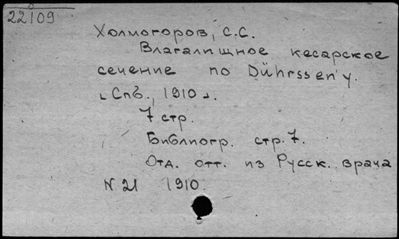 22109
Холмогоров, С.С.
Влагалищное кесарское
сечение по Dührssen'у.
[Спб., 1910].
7 стр.
Библиогр. стр. 7.
Отд. отт. из Русск. врача
N 21 1910.